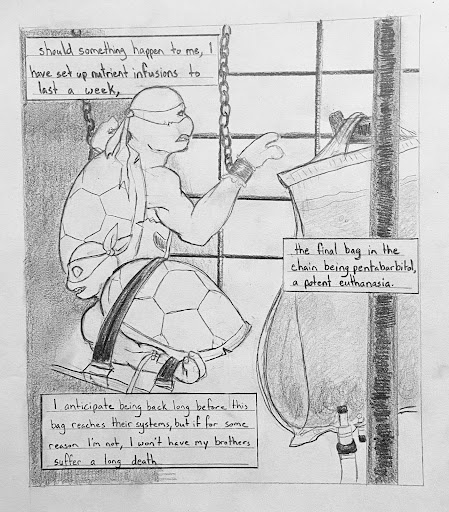 should something happen to me, I
have set up nutrient infusions to
last a week,
the final bag in the
chain being pentabarbitol,
a potent euthanasia.
I anticipate being back long before this
bag reaches their systems, but if for some
reason I'm not, I won't have my brothers
suffer a long death